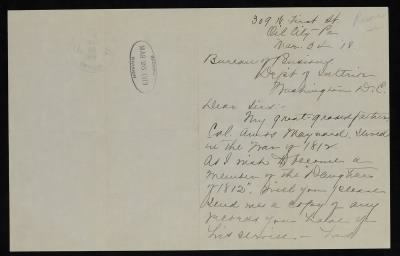 309 W First St
Oil City Pa
Bureau of Pensions
Dept of Interior
Washington D.C.
Dear Sirs:-
My great-grandfather
Col. Amos Maynard served
in the War of 1812
As I wish to become a
member of the "Daughters
of 1812". Will you please
send me a copy of any
records you have of
his service.-